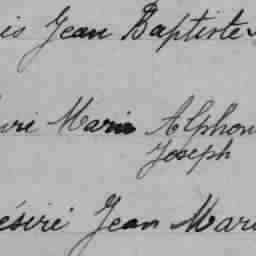 is Jean Baptiste
ure Marie Alphon
Joseph
ésiré Jean Mari